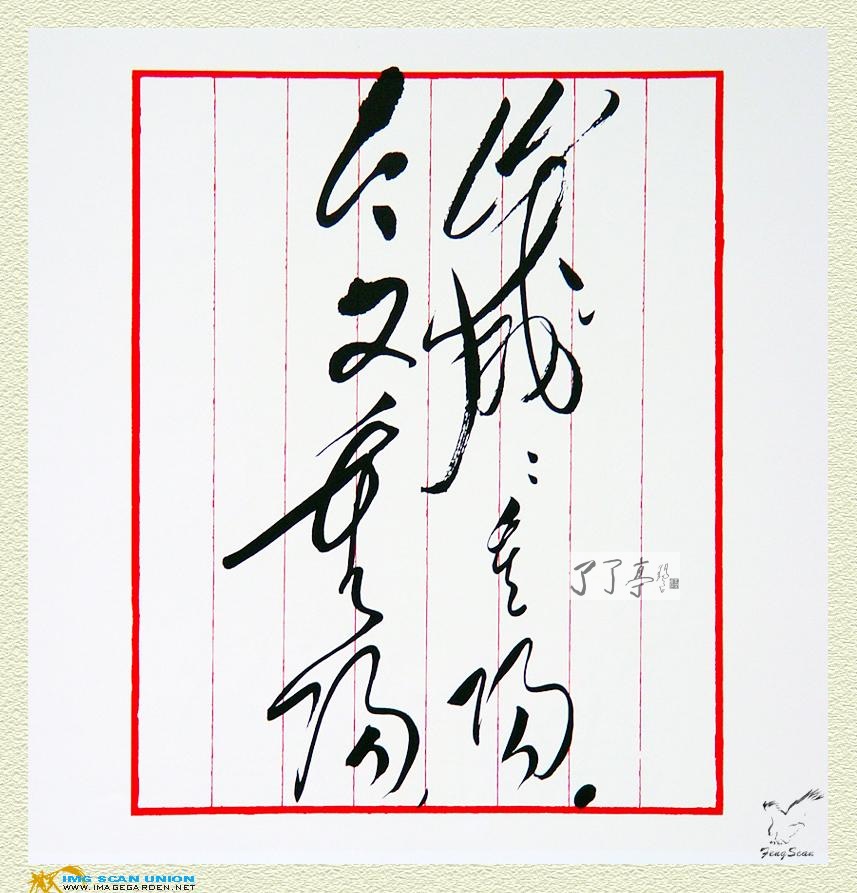 岁岁重阳
今又重阳
了了亭
FengScan
IMG SCAN UNION
WWW.IMAGEGARDEN.NET